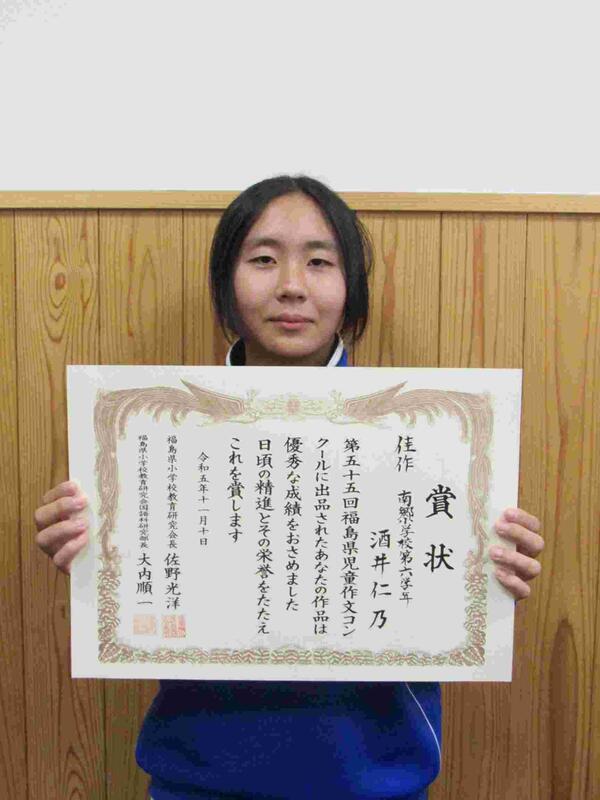 賞状
佳作
南郷小学校第六学年
酒井仁乃
第五十五回福島県児童作文コン
クールに出品されたあなたの作品は
優秀な成績をおさめました
日頃の精進とその栄誉をたたえ
これを賞します
令和五年十一月十日
福島県小学校教育研究会長 佐野光洋
福島県小学校教育研究会国語科研究部長 大内順一